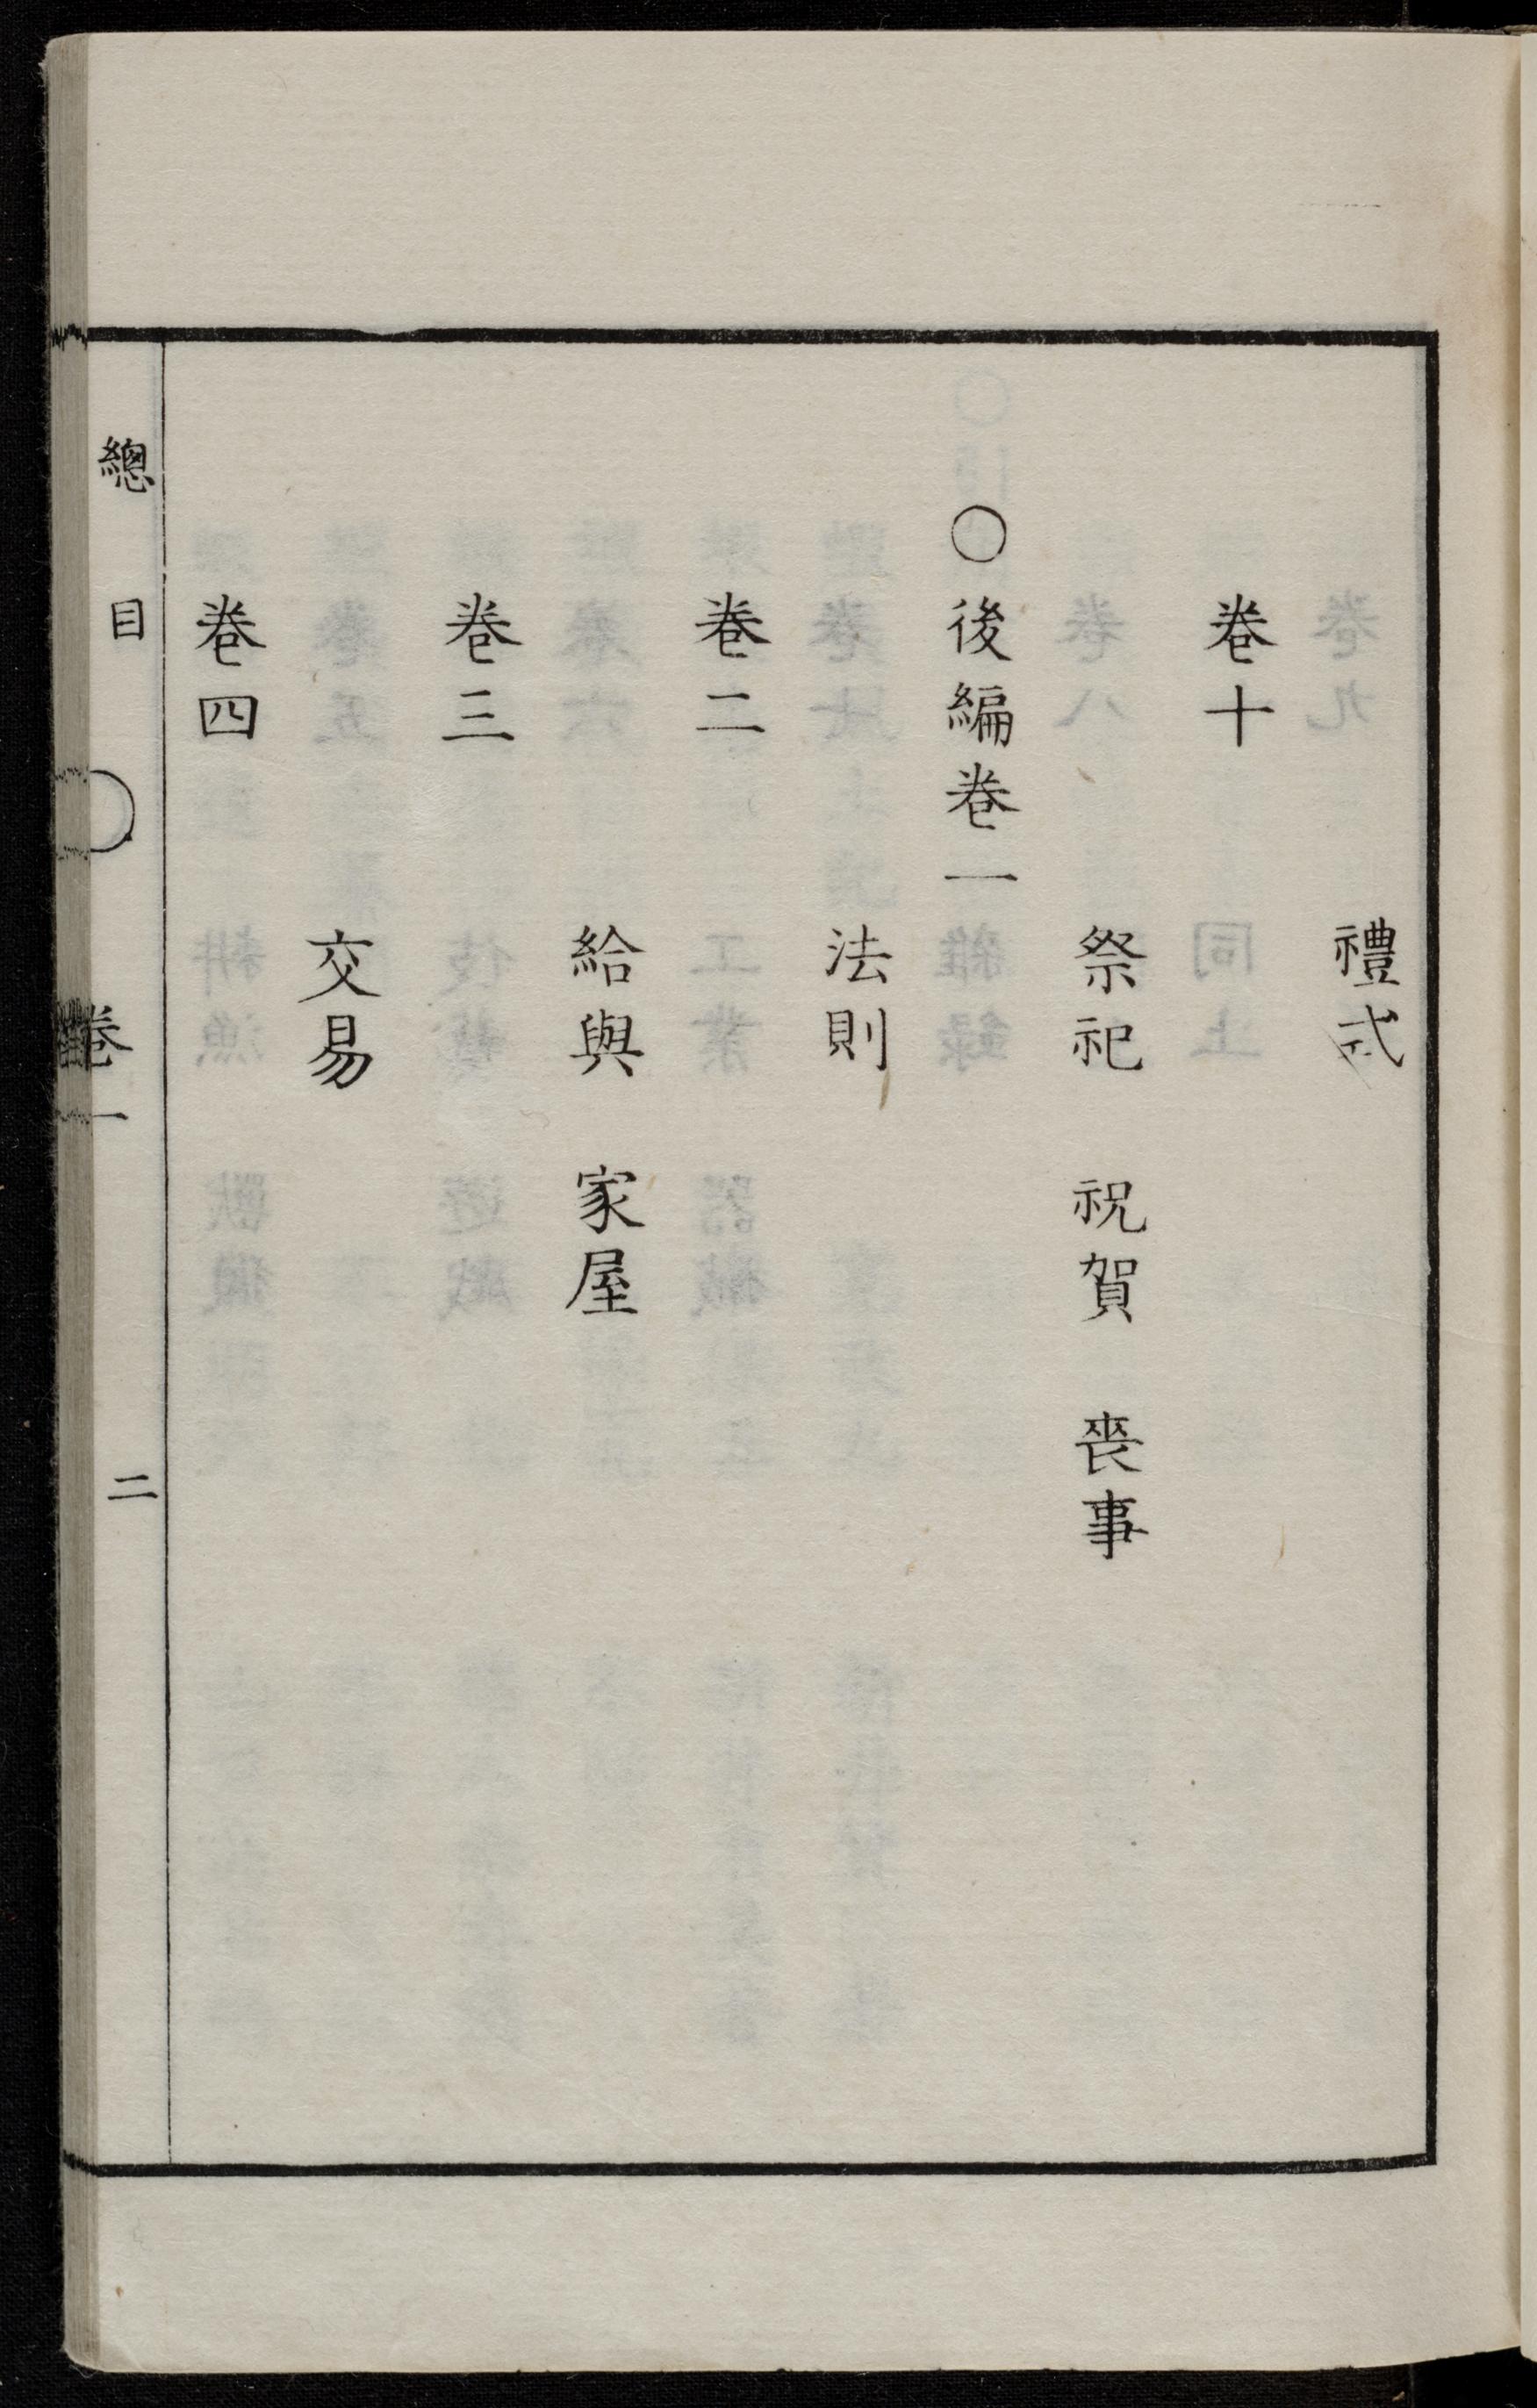 禮式
卷十
祭祀　祝賀　喪事
〇後編卷一
法則
卷二
給與　家屋
卷三
交易
卷四
總目　卷一　二